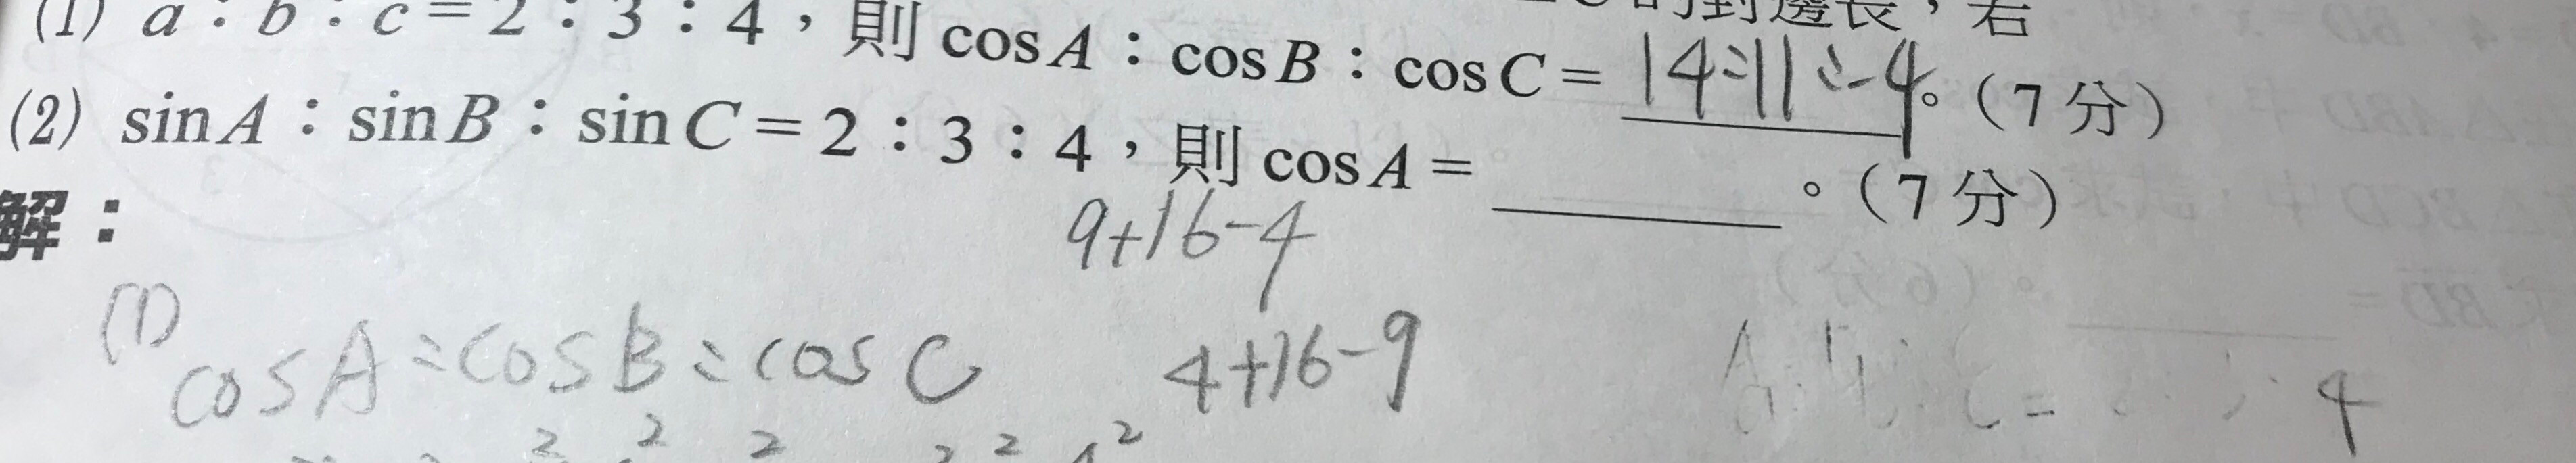 (1) a：b：c＝2：3：4，則 cosA：cosB：cosC＝14:11:-4。（7分）
的對邊長，若
(2) sinA：sinB：sinC＝2：3：4，則 cosA＝＿＿＿。（7分）
解：
9+16-4
(1)
cosA:cosB:cosC 4+16-9
4